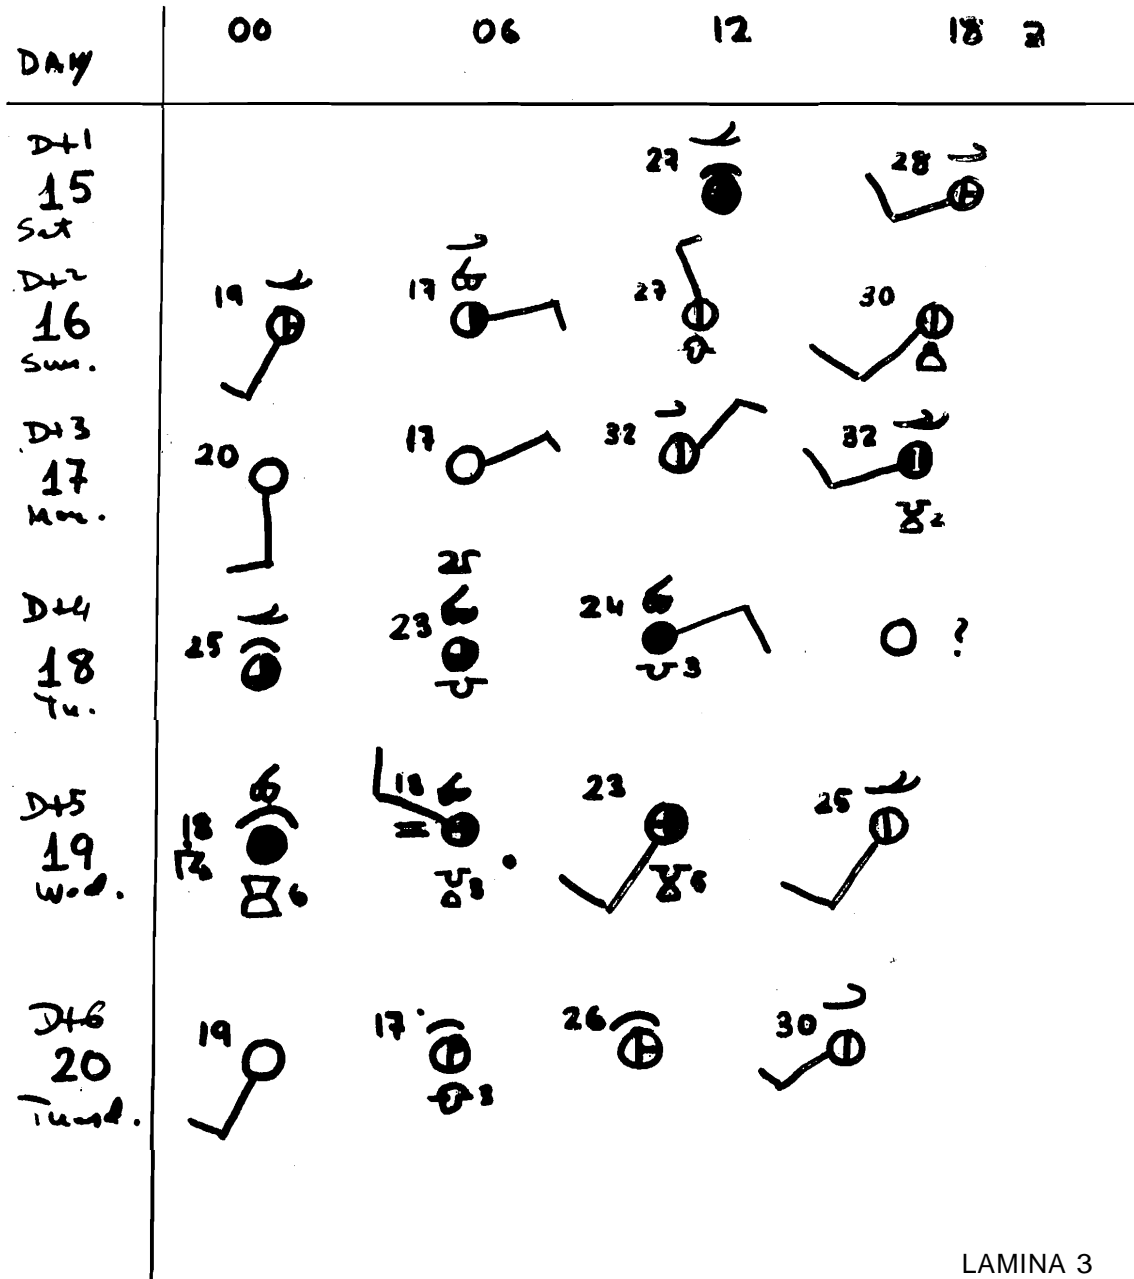 00 06 12 18 Z
DAY
D+1
15
Sat
27 28
D+2
16
Sun.
19 17 27 30
D+3
17
Mon.
20 17 32 32
2
D+4
18
Tu.
25
25 23 24 ?
3
D+5
19
Wed.
18 18 23 25
6 3 6
D+6
20
19 17 26 30
3
LAMINA 3